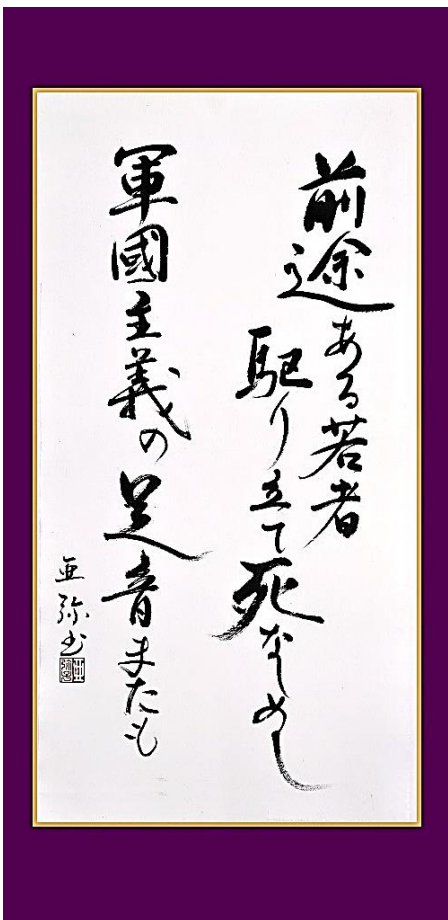 前途ある若者
駆り立て死なしめし
軍國主義の足音またも
亜弥書